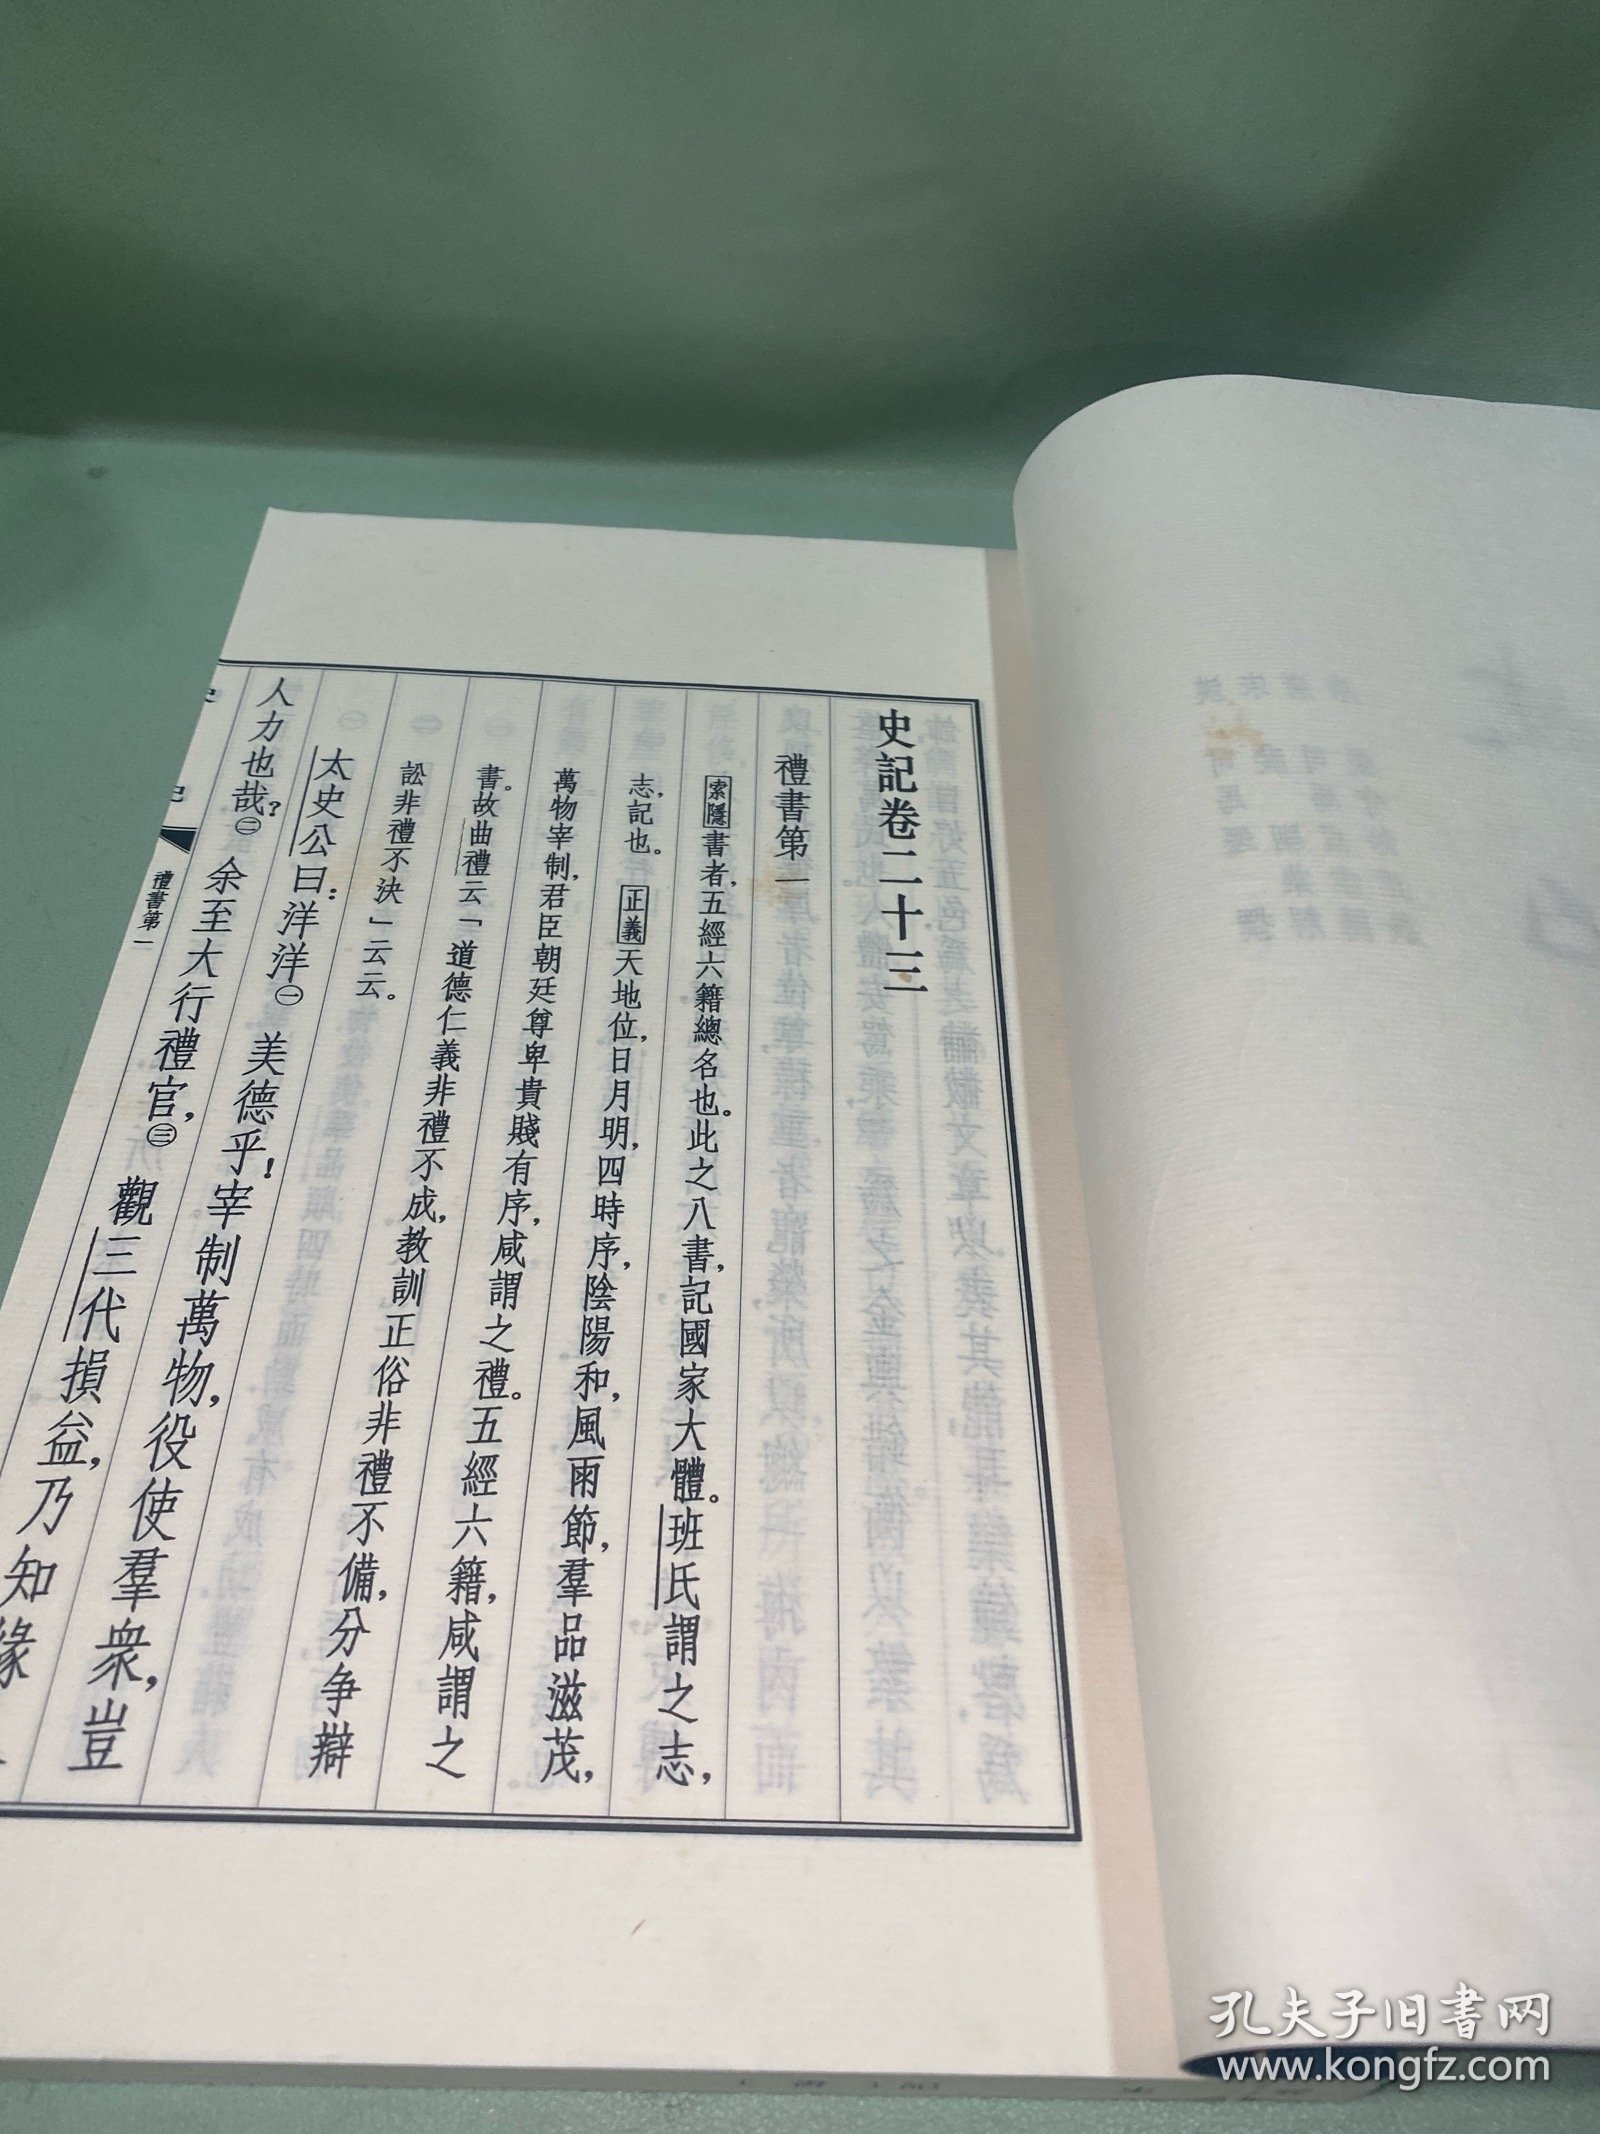 史記卷二十三
禮書第一
索隱書者，五經六籍總名也。此之八書，記國家大體。班氏謂之志，
志，記也。正義天地位，日月明，四時序，陰陽和，風雨節，羣品滋茂，
萬物宰制，君臣朝廷尊卑貴賤有序，咸謂之禮。五經六籍，咸謂之
書。故曲禮云「道德仁義非禮不成，教訓正俗非禮不備，分争辯
訟非禮不決」云云。
太史公曰：洋洋㊀美德乎！宰制萬物，役使羣衆，豈
人力也哉？㊁余至大行禮官，㊂觀三代損益，乃知緣
禮書第一
孔夫子旧书网
www.kongfz.com